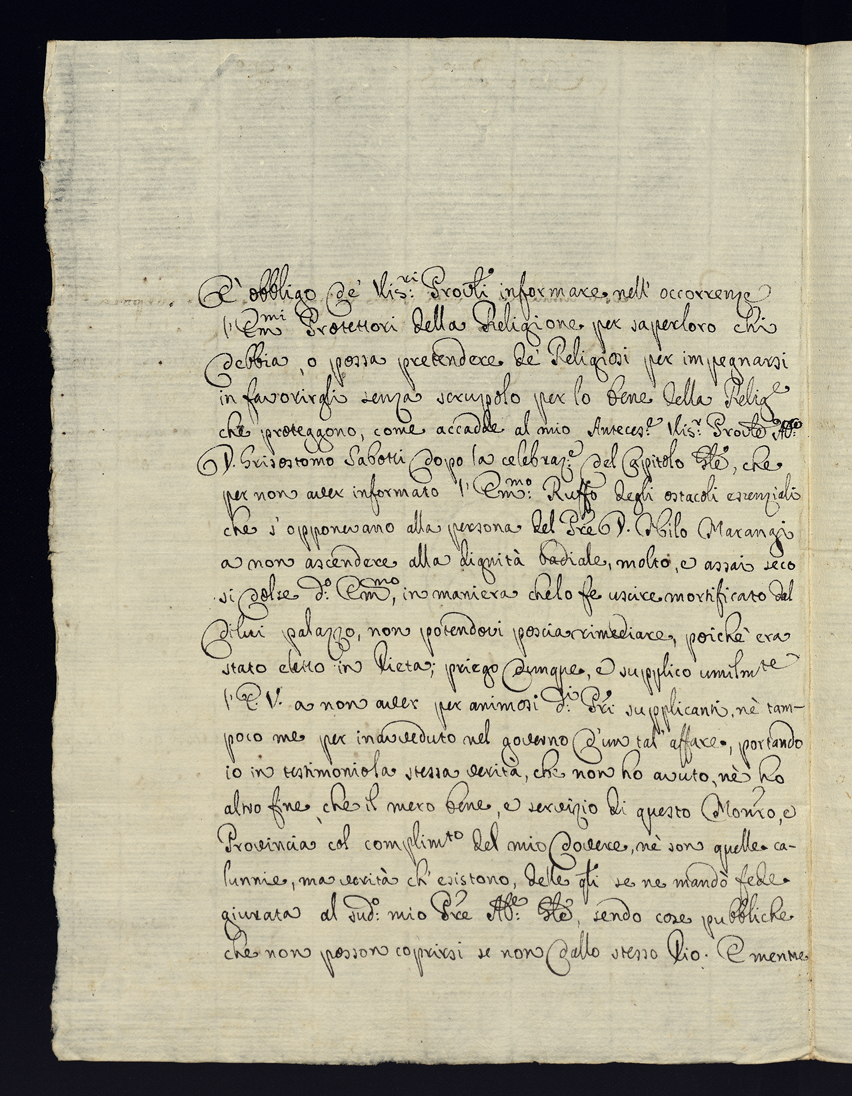 E' obbligo de' Vis:ri Prov̄li informare nell' occorrenze
l' Em̄mi Protettori della Religione per saperloro chi
debbia, o possa pretendere de' Religiosi per impegnarsi
in favorirgli senza scrupolo per lo bene della Relig.e
che proteggono, come accadde al mio Anteces.re Vis.r Prov̄le Ab.te
D. Grisostomo Sabotti dopo la celebraz.e del Capitolo Gn̄le, che
per non aver informato l' Em̄:mo Ruffo degli ostacoli essenziali
che s' opponevano alla persona del Pr̄e D. Nilo Marangi
a non ascendere alla dignità badiale, molto, e assai seco
si dolse d.o Em̄mo, in maniera chelo fe uscire mortificato dal
dilui palazzo, non potendovi poscia rimediare, poichè era
stato eletto in Dieta; priego dunque, e supplico umilm.te
l' E. V. a non aver per animosi d.i Pr̄i supplicanti, nè tam-
poco me per inavveduto nel governo d'un tal' affare, portando
io in testimoniola stessa verità, che non ho avuto, nè ho
altro fine, che il mero bene, e servizio di questo Mon.ro, e
Provincia col complim.to del mio dovere, nè son quelle ca-
lunnie, ma verità ch' esistono, delle q̄li se ne mandò fede
giurata al sud.o mio Pr̄e Ab.e Gn̄le, sendo cose pubbliche
che non posson coprirsi se non dallo stesso Dio. E mentre